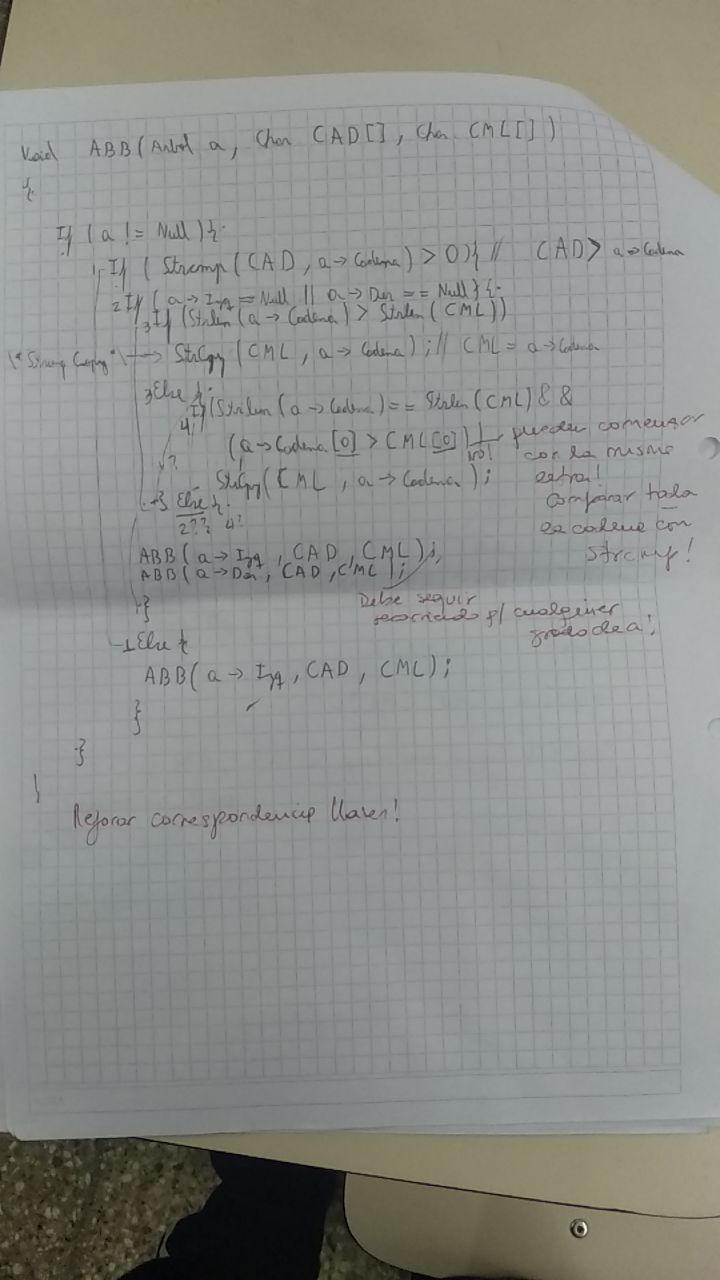 Void ABB(Arbol a, Char CAD[], Char CML[])
{
If (a != Null){
1 If (Strcmp(CAD, a→Cadena) > 0){ // CAD > a→Cadena
2 If (a→Izq == Null || a→Der == Null){
3 If (Strlen(a→Cadena) > Strlen(CML))
\*String Copy*\ → StrCpy(CML, a→Cadena); // CML = a→Cadena
3 Else {
4 If (Strlen(a→Cadena) == Strlen(CML) &&
(a→Cadena[0] > CML[0]) pueden comenzar
con la misma
?
StrCpy(CML, a→Cadena); letra!
} Else {
Comparar toda
2??, 4?
la cadena con
strcmp!
ABB(a→Izq, CAD, CML);
ABB(a→Der, CAD, CML);
}
Debe seguir
recorriendo p/ cualquier
grado de a!
1 Else {
ABB(a→Izq, CAD, CML);
}
}
}
Mejorar correspondencia llaves!